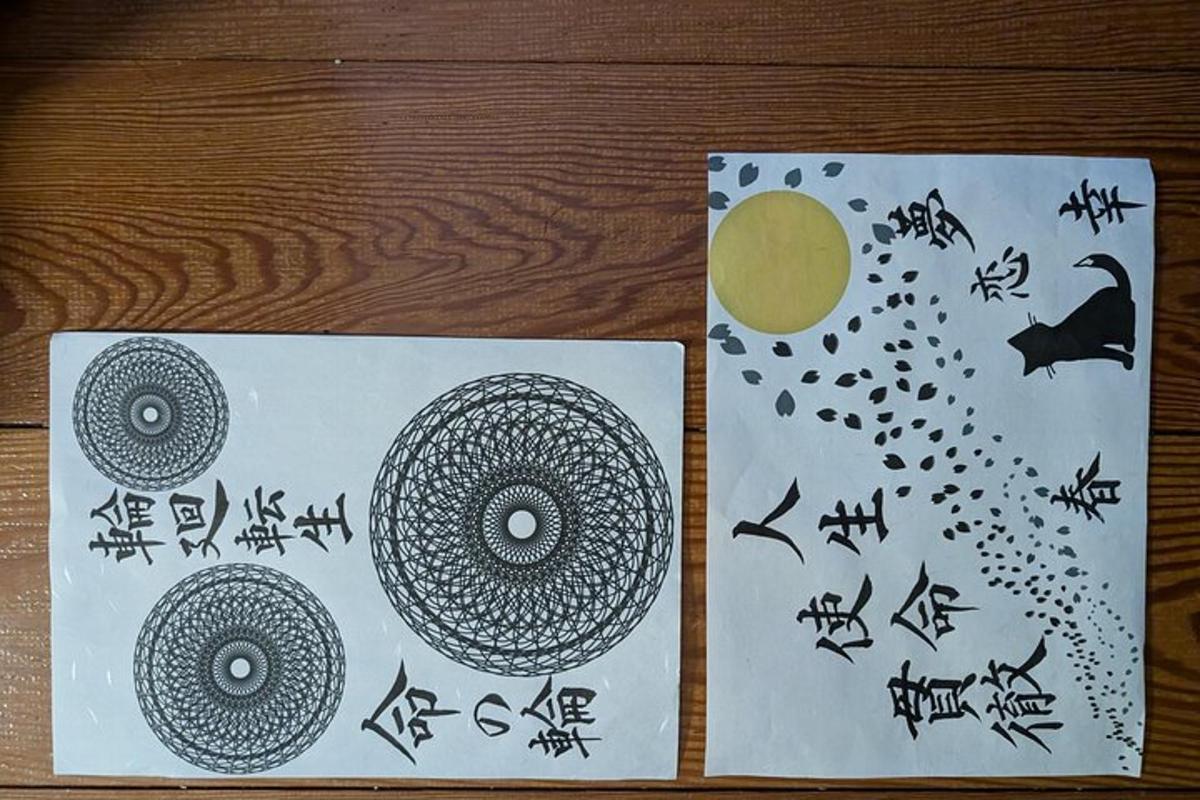 輪廻転生
命の輪
幸
夢
恋
春
人生
使命
貫徹